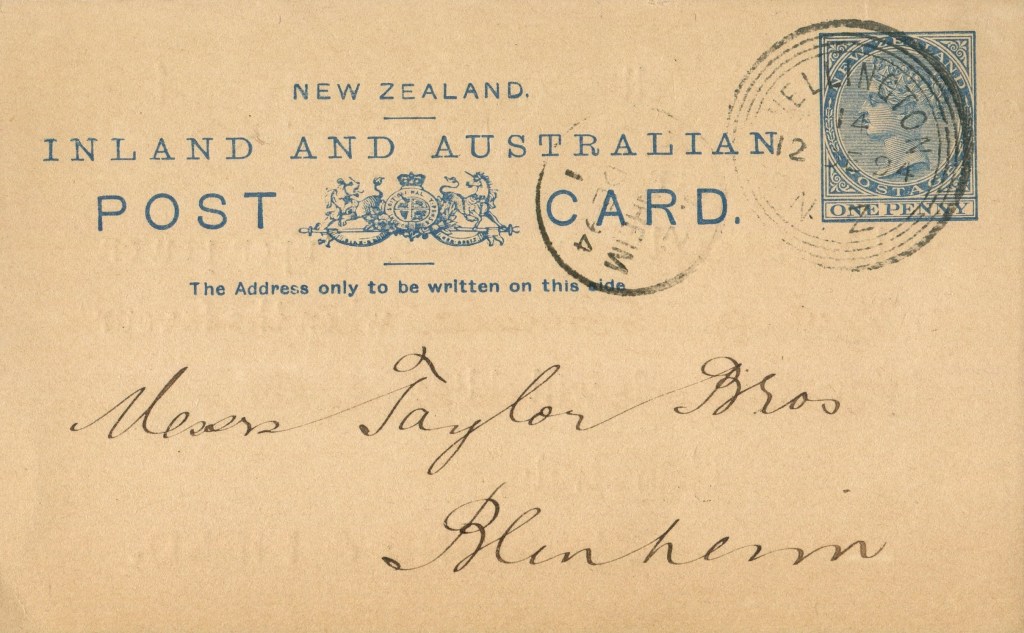 NEW ZEALAND.
INLAND AND AUSTRALIAN
POST CARD.
The Address only to be written on this side
NEW ZEALAND
POSTAGE
ONE PENNY
WELLINGTON
14
12 94
N Z
DE
94
Messrs Taylor Bros
Blenheim